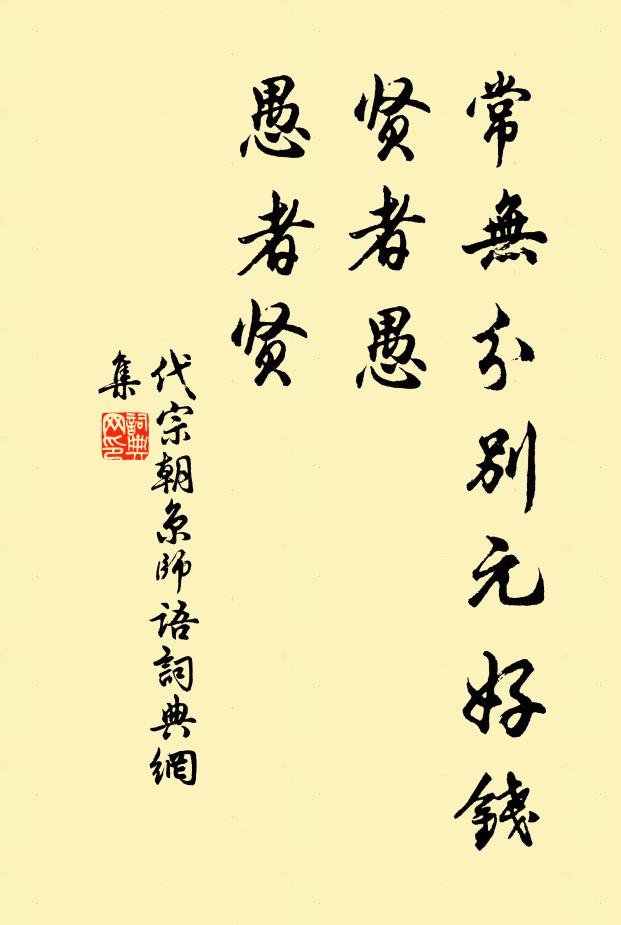 常無分別元好錢
贤者愚
愚者贤
代宗朝京師語詞典網
集
詞典网印